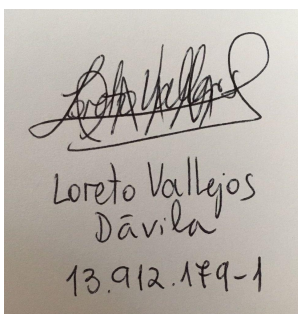 Loreto Vallejos
Loreto Vallejos
Dāvila
13.912.179-1